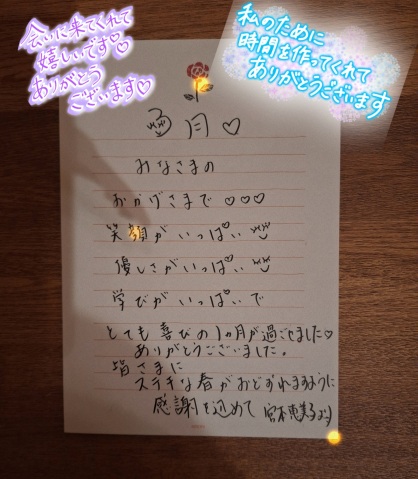 会いに来てくれて
嬉しいです♡
ありがとう
ございます♡
私のために
時間を作ってくれて
ありがとうございます
月♡
みなさまの
おかげさまで♡♡♡
笑顔がいっぱい
優しさがいっぱい
学びがいっぱいで
とても喜びの1ヵ月が過ごせました♡
ありがとうございました。
皆さまに
ステキな春がおとずれますように
感謝を込めて 宮本恵美より